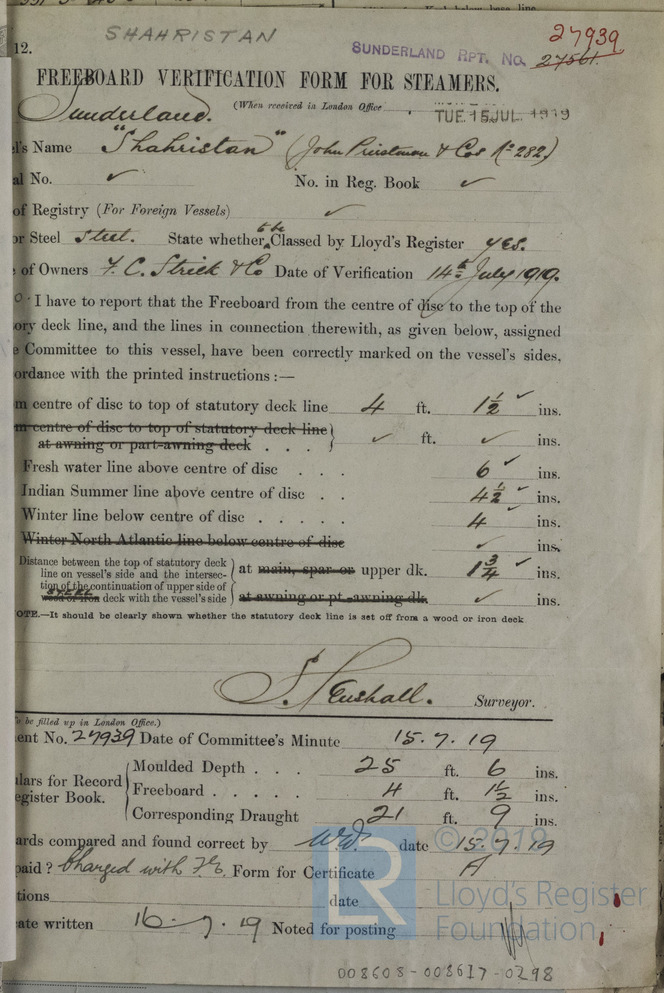 SHAHRISTAN
27939
12.
SUNDERLAND RPT. No. 27561.
FREEBOARD VERIFICATION FORM FOR STEAMERS.
Sunderland.
(When received in London Office
TUE 15 JUL. 1919
l's Name "Shahristan" (John Priestman & Cos No 282)
al No. ✓ No. in Reg. Book ✓
of Registry (For Foreign Vessels) ✓
or Steel Steel. State whether to be Classed by Lloyd's Register yes.
of Owners F. C. Strick & Co Date of Verification 14th July 1919.
I have to report that the Freeboard from the centre of disc to the top of the
ory deck line, and the lines in connection therewith, as given below, assigned
e Committee to this vessel, have been correctly marked on the vessel's sides,
ordance with the printed instructions:—
m centre of disc to top of statutory deck line 4 ft. 1½ ✓ ins.
m centre of disc to top of statutory deck line
at awning or part-awning deck . . . ✓ ft. ✓ ins.
Fresh water line above centre of disc . . . 6 ✓ ins.
Indian Summer line above centre of disc . . 4½ ✓ ins.
Winter line below centre of disc . . . . . 4 ✓ ins.
Winter North Atlantic line below centre of disc ✓ ins.
Distance between the top of statutory deck
line on vessel's side and the intersec-
tion of the continuation of upper side of
steel
wood or iron deck with the vessel's side
at main, spar or upper dk. 1¾ ✓ ins.
at awning or pt.-awning dk. ✓ ins.
OTE.—It should be clearly shown whether the statutory deck line is set off from a wood or iron deck
Surveyor.
o be filled up in London Office.)
ent No. 27939 Date of Committee's Minute 15.7.19
lars for Record
egister Book.
Moulded Depth . . . 25 ft. 6 ins.
Freeboard . . . . . 4 ft. 1½ ins.
Corresponding Draught 21 ft. 9 ins.
ards compared and found correct by date 15.7.19
paid? Charged with F.E. Form for Certificate A
tions date
ate written 16.7.19 Noted for posting
LR
© 2019
Lloyd's Register
Foundation
008608-008617-0298